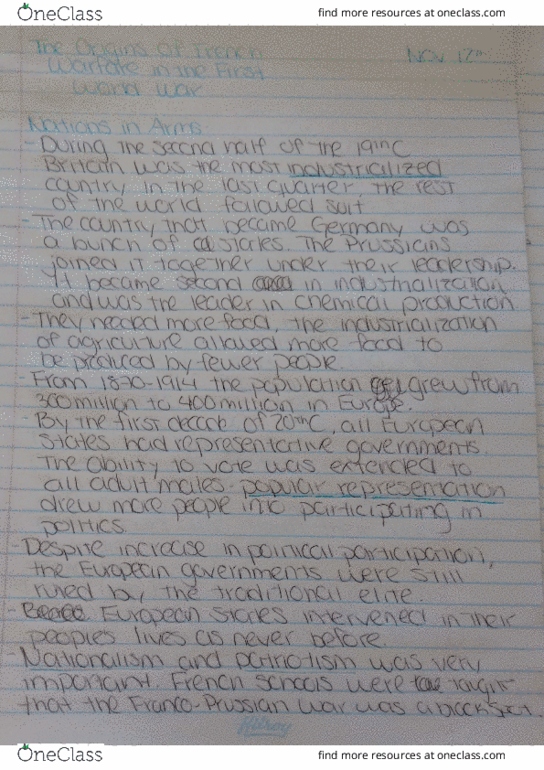 OneClass
find more resources at oneclass.com
The Origins of Trench
Warfare in the First
World War
Nov 12th
Nations in Arms
- During the second half of the 19thC
Britain was the most industrialized
country, in the last quarter, the rest
of the world followed suit
- The country that became Germany was
a bunch of states. The Prussians
joined it together under their leadership.
It became second in industrialization
and was the leader in chemical production
- They needed more food, the industrialization
of agriculture allowed more food to
be produced by fewer people.
- From 1870-1914 the population grew from
300 million to 400 million in Europe.
- By the first decade of 20thC, all European
states had representative governments.
The ability to vote was extended to
all adult males - popular representation
drew more people into participating in
politics
- Despite increase in political participation,
the European governments were still
ruled by the traditional elite.
- European states intervened in their
peoples lives as never before.
- Nationalism and patriotism was very
important. French schools were taught
that the Franco-Prussian war was a black spot.
Hilroy
OneClass
find more resources at oneclass.com